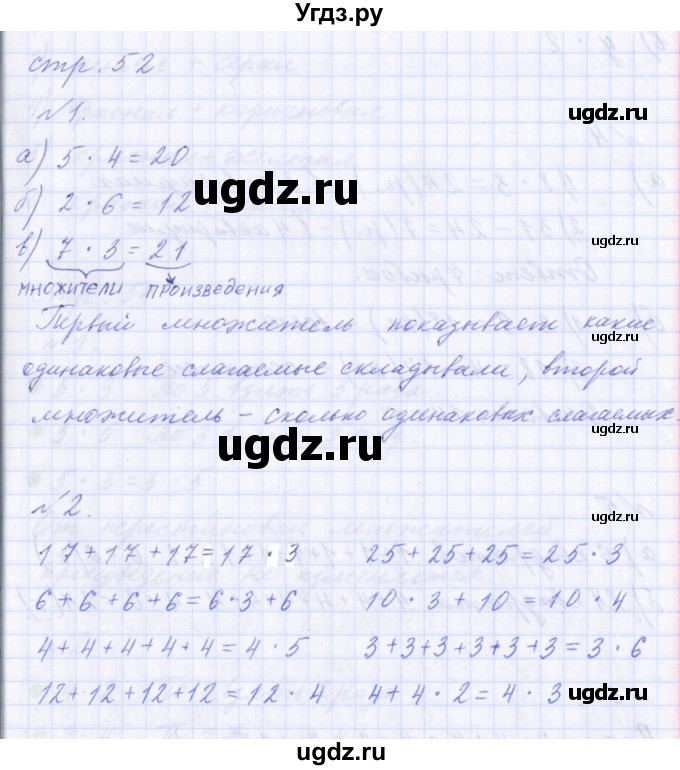 Угдз.ру
стр. 52
№1.
а) 5 · 4 = 20
б) 2 · 6 = 12
в) 7 · 3 = 21
множители произведения
Первый множитель показывает какие
одинаковые слагаемые складывали, второй
множитель – сколько одинаковых слагаемых.
№2.
17 + 17 + 17 = 17 · 3 25 + 25 + 25 = 25 · 3
6 + 6 + 6 + 6 = 6 · 3 + 6 10 · 3 + 10 = 10 · 4
4 + 4 + 4 + 4 + 4 = 4 · 5 3 + 3 + 3 + 3 + 3 + 3 = 3 · 6
12 + 12 + 12 + 12 = 12 · 4 4 + 4 · 2 = 4 · 3
ugdz.ru
ugdz.ru
ugdz.ru
ugdz.ru
ugdz.ru
ugdz.ru
ugdz.ru
ugdz.ru
ugdz.ru
ugdz.ru
ugdz.ru